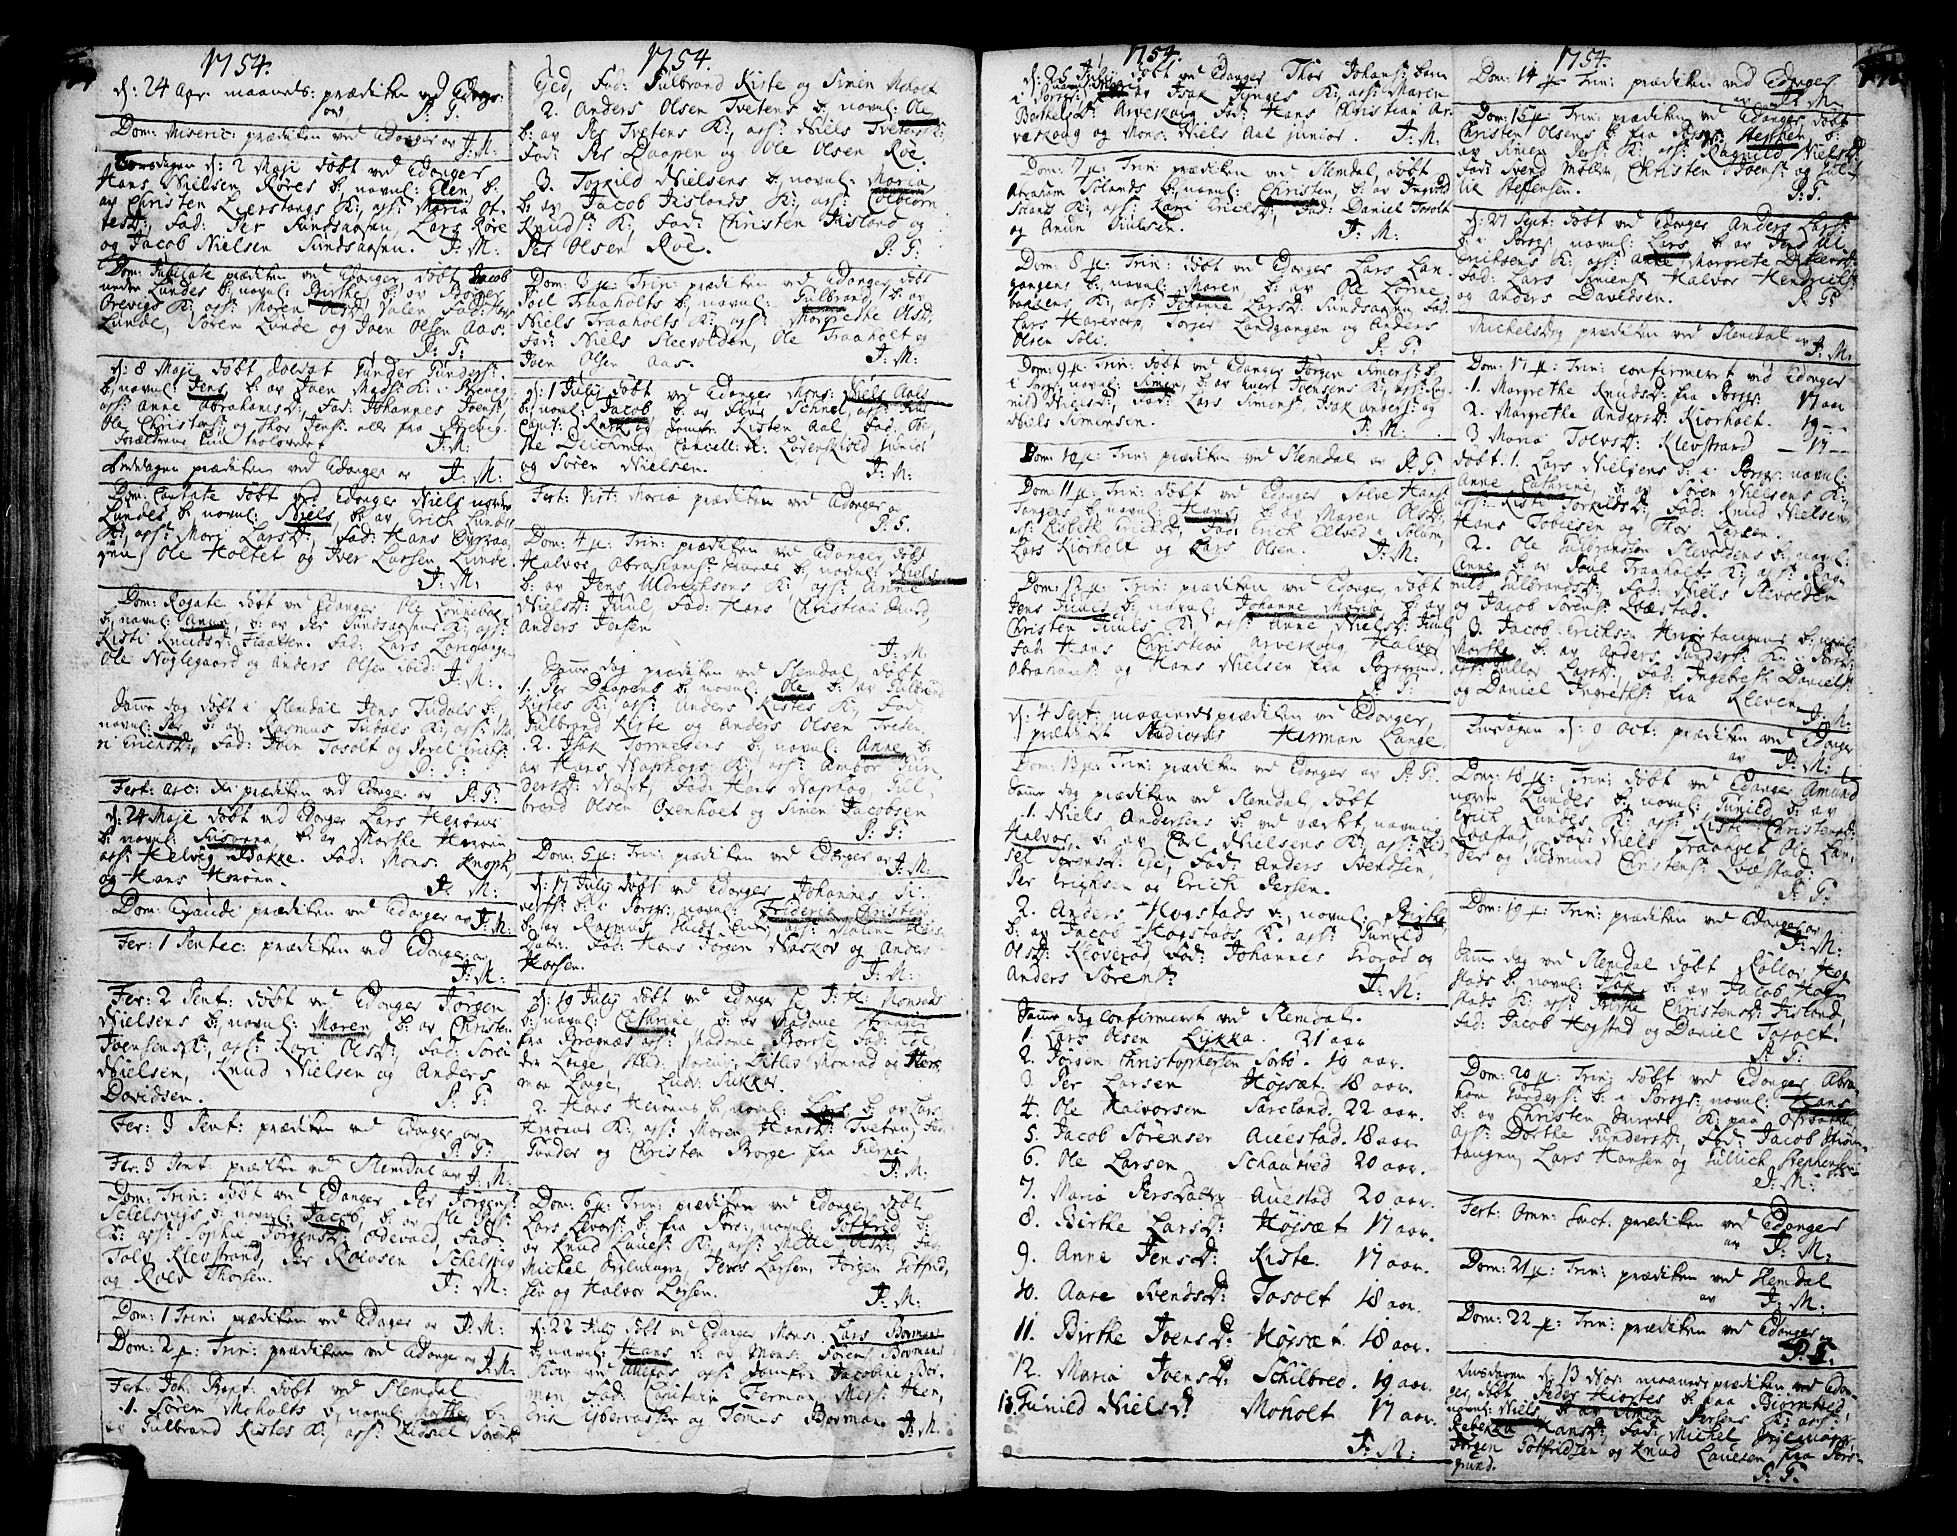 1754.
d: 24 Apr. maaneds: prædiken ved Edang:
av P: G:
Dom: Miseric: prædiken ved Edanger av J: M:
Torsdagen d: 2 Maji døbt ved Edanger
Hans Nielsen Røres b: navnl: Elen b:
av Christen Lierstangs K: afs: Maria Ot-
tesd: fad: Per Sundsaasen, Lars Røre
og Jacob Nielsen Sundsaasen. J: M:
Dom: Jubilate prædiken ved Edanger, døbt Jacob
nedre Lundes b: navnl: Birthe, b: av
Brevigs K: afs: Maren Olsd: Valen fad:
Lunde, Søren Lunde og Joen Olsen Aas.
P: G:
d: 8 Maji døbt Gunder Gunders:
b: navnl: Jens b: av Joen Mads: K: i Brevig
afs: Anne Abrahamsd: fad: Johannes Joens:
Ole Christens: og Thor Jens: alle fra Brevig.
Forældrene kun trolovede J: M:
Bededagen prædiken ved Edanger av J: M:
Dom: Cantate døbt ved Edanger Niels nordre
Lundes b: navnl: Niels, b: av Erich Lundes
K: afs: Mari Larsd: fad: Hans
Ole Holtet og Iver Larsen Lunde.
J: M:
Dom: Rogate døbt ved Edanger Ole
b: navnl: Anne, b: av Per Sundsaasens K: afs:
Kisti Knudsd: fad: Lars Langangen
Ole Nøglegaard og Anders Olsen ibid: J: M:
Samme dag døbt i Slemdal Jens Tudals b:
navnl: Per b: av Rasmus Tudals K: afs: Ma-
ri Erichsd: fad: Joen Tosolt og Povel Erichs:
P: G:
Fest: asc: Xi prædiken ved Edanger av P: G:
d: 24 Maji døbt ved Edanger Lars Herøens
b: navnl: Susanna b: av Marthe Herøen
afs: Helvig Bakke. fad: Mons: Knoph
og Hans Herøen. J: M:
Dom: Exaudi prædiken ved Edanger av J: M:
Fer: 1 Pentec: prædiken ved Edanger av
J: M:
Fer: 2 Pent: døbt ved Edanger Jørgen
Nielsens b: navnl: Maren b: av Christen
Joensens K: afs: Kari Olsd: fad: Søren
Nielsen, Knud Nielsen og Anders
Davidsen. P: G:
Fer: 3 Pent: prædiken ved Edanger av
P: G:
Fer: 3 Pent: prædiken ved Slemdal av J: M:
Dom: Trin: døbt ved Edanger Per Jørgens:
Schelsvigs b: navnl: Jacob b: av Ole
K: afs: Sophie Jørgensd: Ødevald, fad:
Tolv Klevstrand, Per Rolvsen Schelsvig
og Rolv Thorsen. J: M:
Dom: 1 Trin: prædiken ved Edanger av J: M:
Dom: 2 p: Trin: prædiken ved Edanger av J: M:
Fest: Joh: Bapt: døbt ved Slemdal
1. Søren Moholts b: navnl: Marthe b:
av Gulbrand Kistes K: afs: Kidsel Sørensd:
1754.
Eied, fad: Gulbrand Kiste og Simen Moholt
2. Anders Olsen Tvetens b: navnl: Ole
b: av Per Tvetens K: afs: Niels Tvetens K:
fad: Per Daapen og Ole Olsen Roe.
3. Torkild Nielsens b: navnl: Maria,
b: av Jacob Fislands K: afs: Colbiørn
Knuds: K: fad: Christen Fisland og
Per Olsen Roe. P: G:
Dom: 3 p: Trin: prædiken ved Edanger, døbt
Joel Traaholts b: navnl: Gulbrand, b: av
Niels Traaholts K: afs: Margrethe Olsd:
fad: Niels Slevolden, Ole Traaholt og
Joen Olsen Aas. J: M:
d: 1 Julij døbt ved Edanger Mons: Niels Aals
b: navnl: Jacob b: av Peter Schnel, afs:
Jomfr: Kisten Aal fad:
Deichman Cancell: r: Løvenskiold Junior
og Søren Nielsen. J: M:
Fest: Visit: Mariæ prædiken ved Edanger av
P: G:
Dom: 4 p: Trin: prædiken ved Edanger, døbt
Halvor Abrahams: b: navnl: Niels
b: av Jens Uldrichsens K: afs: Anne
Nielsd: Juul fad: Hans Christian
Anders Jensen
J: M:
Samme dag prædiken ved Slemdal døbt
1. Per Daapens b: navnl: Ole b: av Gulbrand
Kistes K: afs: Anders Kistes K: fad:
Gulbrand Kiste og Anders Olsen Tveten.
2. Isak Tormodsens b: navnl: Anne b:
av Hans K: afs: Ambor Gun-
dersd: fad: Hans Gul-
brand Olsen Oxenholt og Simen Jacobsen
P: G:
Dom: 5 p: Trin: prædiken ved Edanger av J: M:
d: 17 Julij døbt ved Edanger Johannes
b: i Porsgr: navnl: Friderich Christian
b: av Rasmus afs: Maline
fad: Hans Jørgen Naskov og Anders
Hansen. J: M:
d: 19 Julij døbt ved Edanger J: H: Monrads
b: navnl: Cathrine b: av Madame
fra Bragnæs afs: Madame fad:
Lange, Ditlev Monrad og Her-
man Lange,
2. Hans Herøens b: navnl: Lars b: av Lars
Herøens K: afs: Maren Hansd: Tveten, fad:
Gunder og Christen Borge fra
J: M:
Dom: 6 p: Trin: prædiken ved Edanger, døbt
b: fra Pors: navnl: Gotfred b:
av Knud Laues: K: afs: Mette fad:
Michel Jens Larsen, Jørgen Gotfrid-
sen og Halvor Larsen. J: M:
d: 22 Julij døbt ved Edanger Mons: Lars Borman
b: navnl: Hans b: av Mons: Sørens Bormans
ved Ullefos, afs: Jomfr: Jacobine Bor-
man fad: Capitain Ferman,
og Tomas Borman J: M:
1754.
d: 25 Julij døbt ved Edanger Thor Johans: barn
i Porsgr: Isak K: afs: Maren
Bertelsd: fad: Hans Christian Ar-
veskoug og Mons: Niels Aal junior. J: M:
Dom: 7 p: Trin: prædiken ved Slemdal, døbt
Abraham Islands b: navnl: Christen, b: av Ingebor
Islands K: afs: Kari Ericksd: fad: Daniel Tosolt
og Amun Juulsen. J: M:
Dom: 8 p: Trin: døbt ved Edanger Lars Lan-
gangens b: navnl: Maren, b: av Ole
K: afs: Johanne Larsd: Sundsaasen, fad:
Lars Torger Landgangen og Anders
Olsen Soli. P: G:
Dom: 9 p: Trin: døbt ved Edanger Jørgen Simens: b:
i Porsgr: navnl: Simen, b: av Joensens K: afs: Rag-
nild Nielsd: fad: Lars Simens: Isak Anders: og
Niels Simensen. P: M:
Dom: 10 p: Trin: prædiken ved Slemdal av P: G:
Dom: 11 p: Trin: døbt ved Edanger Solve Hans:
Tangens b: navnl: Hans b: av Maren Olsd:
afs: Lisbeth Ericksd: fad: Erich Eilved Solum,
Lars Kiorholt og Lars Olsen. J: M:
Dom: 12 p: Trin: prædiken ved Edanger, døbt
Jens Juuls b: navnl: Johanne Maria b: av
Christen Juuls K: afs: Anne Nielsd: Juul
fad: Hans Christian Arveskoug, Halvor
Abrahams: og Hans Nielsen fra Porsgrund.
P: G:
d: 4 Sept: maaneds prædiken ved Edanger,
præket Studiosus Herman Lange.
Dom: 13 p: Trin: prædiken ved Edanger av P: G:
Samme dag prædiken ved Slemdal døbt
1. Niels Andersens b: ved værket navnlig
Halvor b: av Carl Nielsens K: afs: Kid-
sel Sørensd: Eie, fad: Anders Svendsen,
Per Erichsen og Erich Persen.
2. Anders Hogstads b: navnl: Birthe
b: av Jacob Hogstads K. afs: Gunild
Olsd: Kloverød fad: Johannes Grorød og
Anders Sørens: J: M:
Samme dag confirmeret ved Slemdal.
1. Lars Olsen Lykka. 21 aar
2. Jørgen Christophersen Sorbø. 19 aar.
3. Per Larsen Højsæt. 18 aar.
4. Ole Halvorsen Sarcland. 22 aar.
5. Jacob Sørensen Auestad. 18 aar.
6. Ole Larsen Schautved 20 aar.
7. Maria Persdatter Auestad 20 aar.
8. Birthe Larsd: Højsæt 17 aar.
9. Anne Jensd: Kiste. 17 aar.
10. Aase Svendsd: Tosolt 18 aar.
11. Birthe Joensd: Højsæt 18 aar.
12. Maria Joensd: Schilbred. 19 aar.
13. Gunild Nielsd: Moholt 17 aar.
J: M:
1754.
Dom: 14 p: Trin: prædiken ved Edanger
av J: M:
Dom: 15 p: Trin: prædiken ved Edanger døbt
Christen Olsens b: fra Porsgr: Steffen b:
av Simen K: afs: Ragnild Nielsd:
fad: Svend Møller, Christen Joens: og Gul-
lik Steffensen. P: G:
d: 27 Sept: døbt ved Edanger Anders Lars:
b: i Porsgr: navnl: Lars b: av Jens Al
Erichsens K: afs: Anne Margrete
fad: Lars Simens: Halvor Hendrichs:
og Anders Davidsen. P: G:
Michelsdag prædiken ved Slemdal av J: M:
Dom: 17 p: Trin: confirmeret ved Edanger
1. Margrethe Knudsd: fra Porsgr: 17 aar
2. Margrethe Andersd: Kiorholt. 19 - -
3 Maria Tolvsd: Klevstrand 17 - -
døbt. 1. Lars Nielsens b: i Porsgr: navnl:
Anne Cathrine, b: av Søren Nielsens K:
afs: Kisti Torkildsd: fad: Knud Nielsen,
Hans Tobiesen og Thor Larsen.
2. Ole Gulbrandsen Slevoldens b: navnl:
Anne b: av Joul Traaholts K: afs: Rag-
nild Gulbrandsd: fad: Niels Slevolden
og Jacob Sørens: Lvæstad.
3. Jacob Eriks: Hvistangens b: navnl:
Marthe b: av Anders Gunders: K: i Porsgr:
afs: Larsd: fad: Ingebret Daniels:
og Daniel Ingebrets: fra Kleven
J: M:
Onsdagen d: 9 Oct: prædiken ved Edanger
av J: M:
Dom: 18 p: Trin: døbt ved Edanger Amund
nordre Lundes b: navnl: Gunild b: av
Erich Lundes K: afs: Kisti Christensd:
Lvæstad, fad: Niels Traanvet, Ole Lun-
de og Gudmund Christens: Lvæstad:
P: G:
Dom: 19 p: Trin: prædiken ved Edanger av
J: M:
Samme dag ved Slemdal døbt Hog-
stads b: navnl: Isak b: av Jacob Hog-
stads K: afs: Birthe Christensd: Fisland,
fad: Jacob Hogstad og Daniel Tosolt.
P: G:
Dom: 20 p: Trin: døbt ved Edanger Abra-
ham Gunders: b: i Porsgr: navnl: Hans
b: av Christen K: paa
afs: Dorthe Gundersd: fad: Jacob
tangen, Lars Hansen og Gullich Stephensen
J: M:
Fest: Omn: Sanct. prædiken ved Edanger
av J: M:
Dom: 21 p: Trin: prædiken ved Slemdal
av J: M:
Dom: 22 p: Trin: prædiken ved Edanger av
P: G:
Onsdagen d: 13 Nov: maaneds prædiken ved Edan-
ger, døbt Peder Hiortes b: paa Biørntved,
navnl: Niels b: av Simen Persens K: afs:
Rebekka Hansd: fad: Michel
Jørgen Gotfridsen og Knud Lauesen fra Pors-
grund. P: G: